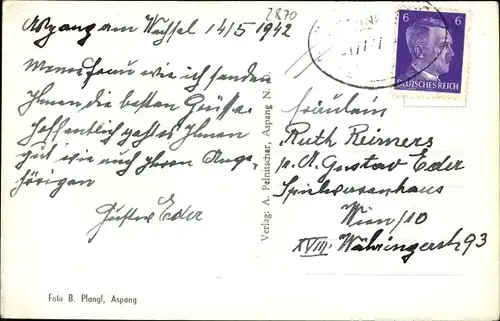 2870
Aspang am Wechsel 14/5 1942
Meine Frau wie ich senden
Ihnen die besten Grüsse.
Hoffentlich geht es Ihnen
gut wie auch Ihren Ange-
hörigen
Gustav Eder
Verlag: A. Pelnitschar, Aspang N.
6 6
DEUTSCHES REICH
Fräulein
Ruth Reimers
p. A. Gustav Eder
Spielwarenhaus
Wien/10
XVIII. Währingerstr 93
Foto B. Plangl, Aspang